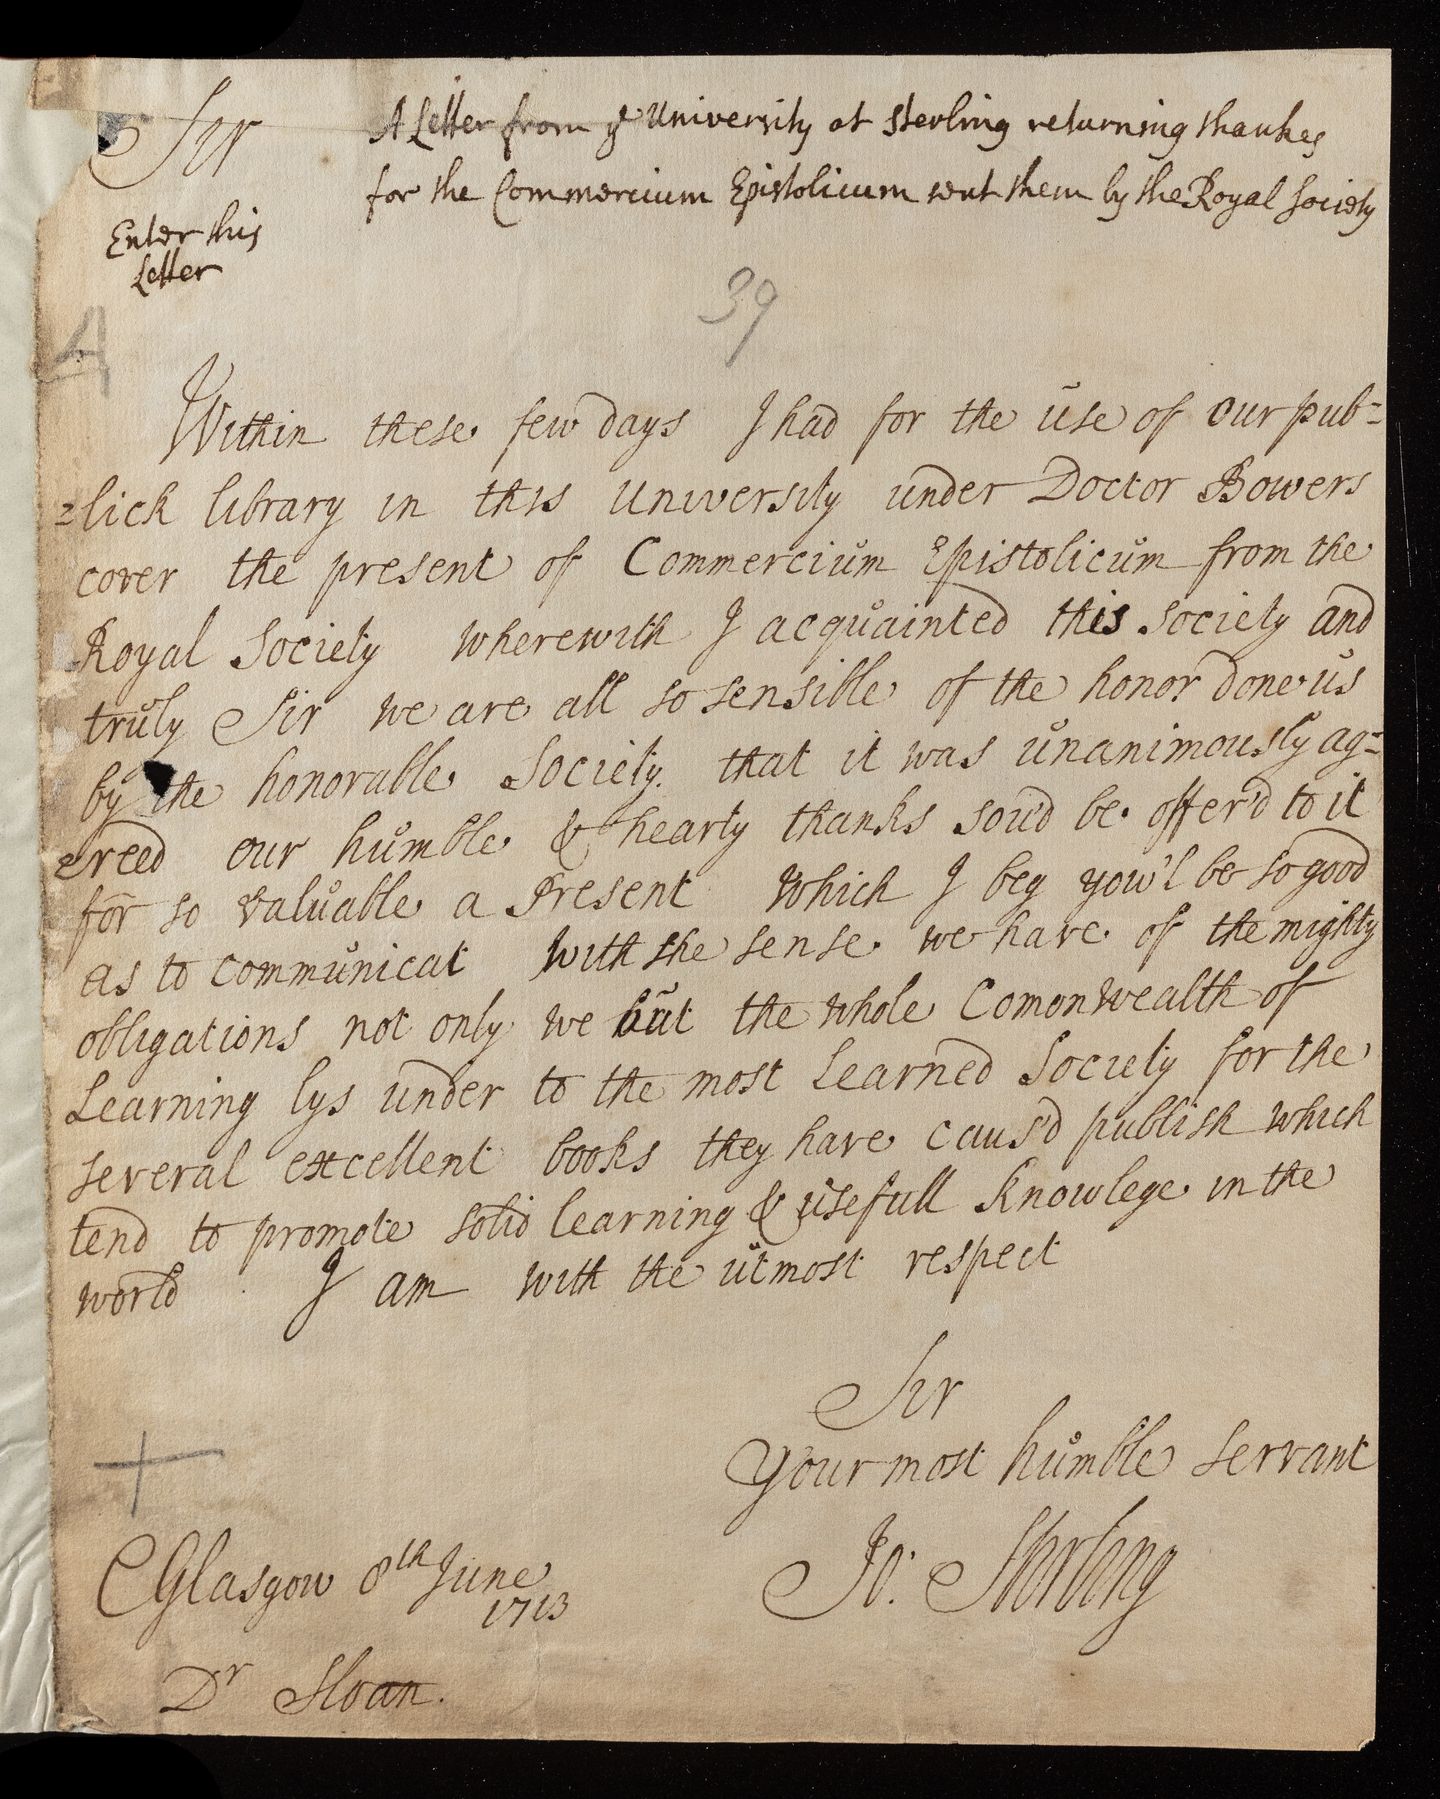 Sir
A Letter from ye University at Sterling returning thankes
for the Commercium Epistolicum sent them by the Royal Society
Enter this
Letter
39
Within these few days I had for the use of our pub=
=lick library in this University under Doctor Bowers
cover the present of Commercium Epistolicum from the
Royal Society wherewith I acquainted this society and
truly Sir we are all so sensible of the honor done us
by the honorable Society. that it was unanimously ag=
=reed our humble & hearty thanks sou'd be offer'd to it
for so valuable a Present Which I beg yow'l be so good
as to communicat With the sense we have of the mighty
obligations not only we but the whole Comonwealth of
Learning lys under to the most Learned Society for the
several excellent books they have caus'd publish which
tend to promote solid learning & usefull Knowlege in the
world I am with the utmost respect
Sir
Your most humble servant
Jo: Stirling
Glasgow 8th June
1713
Dr Sloan.